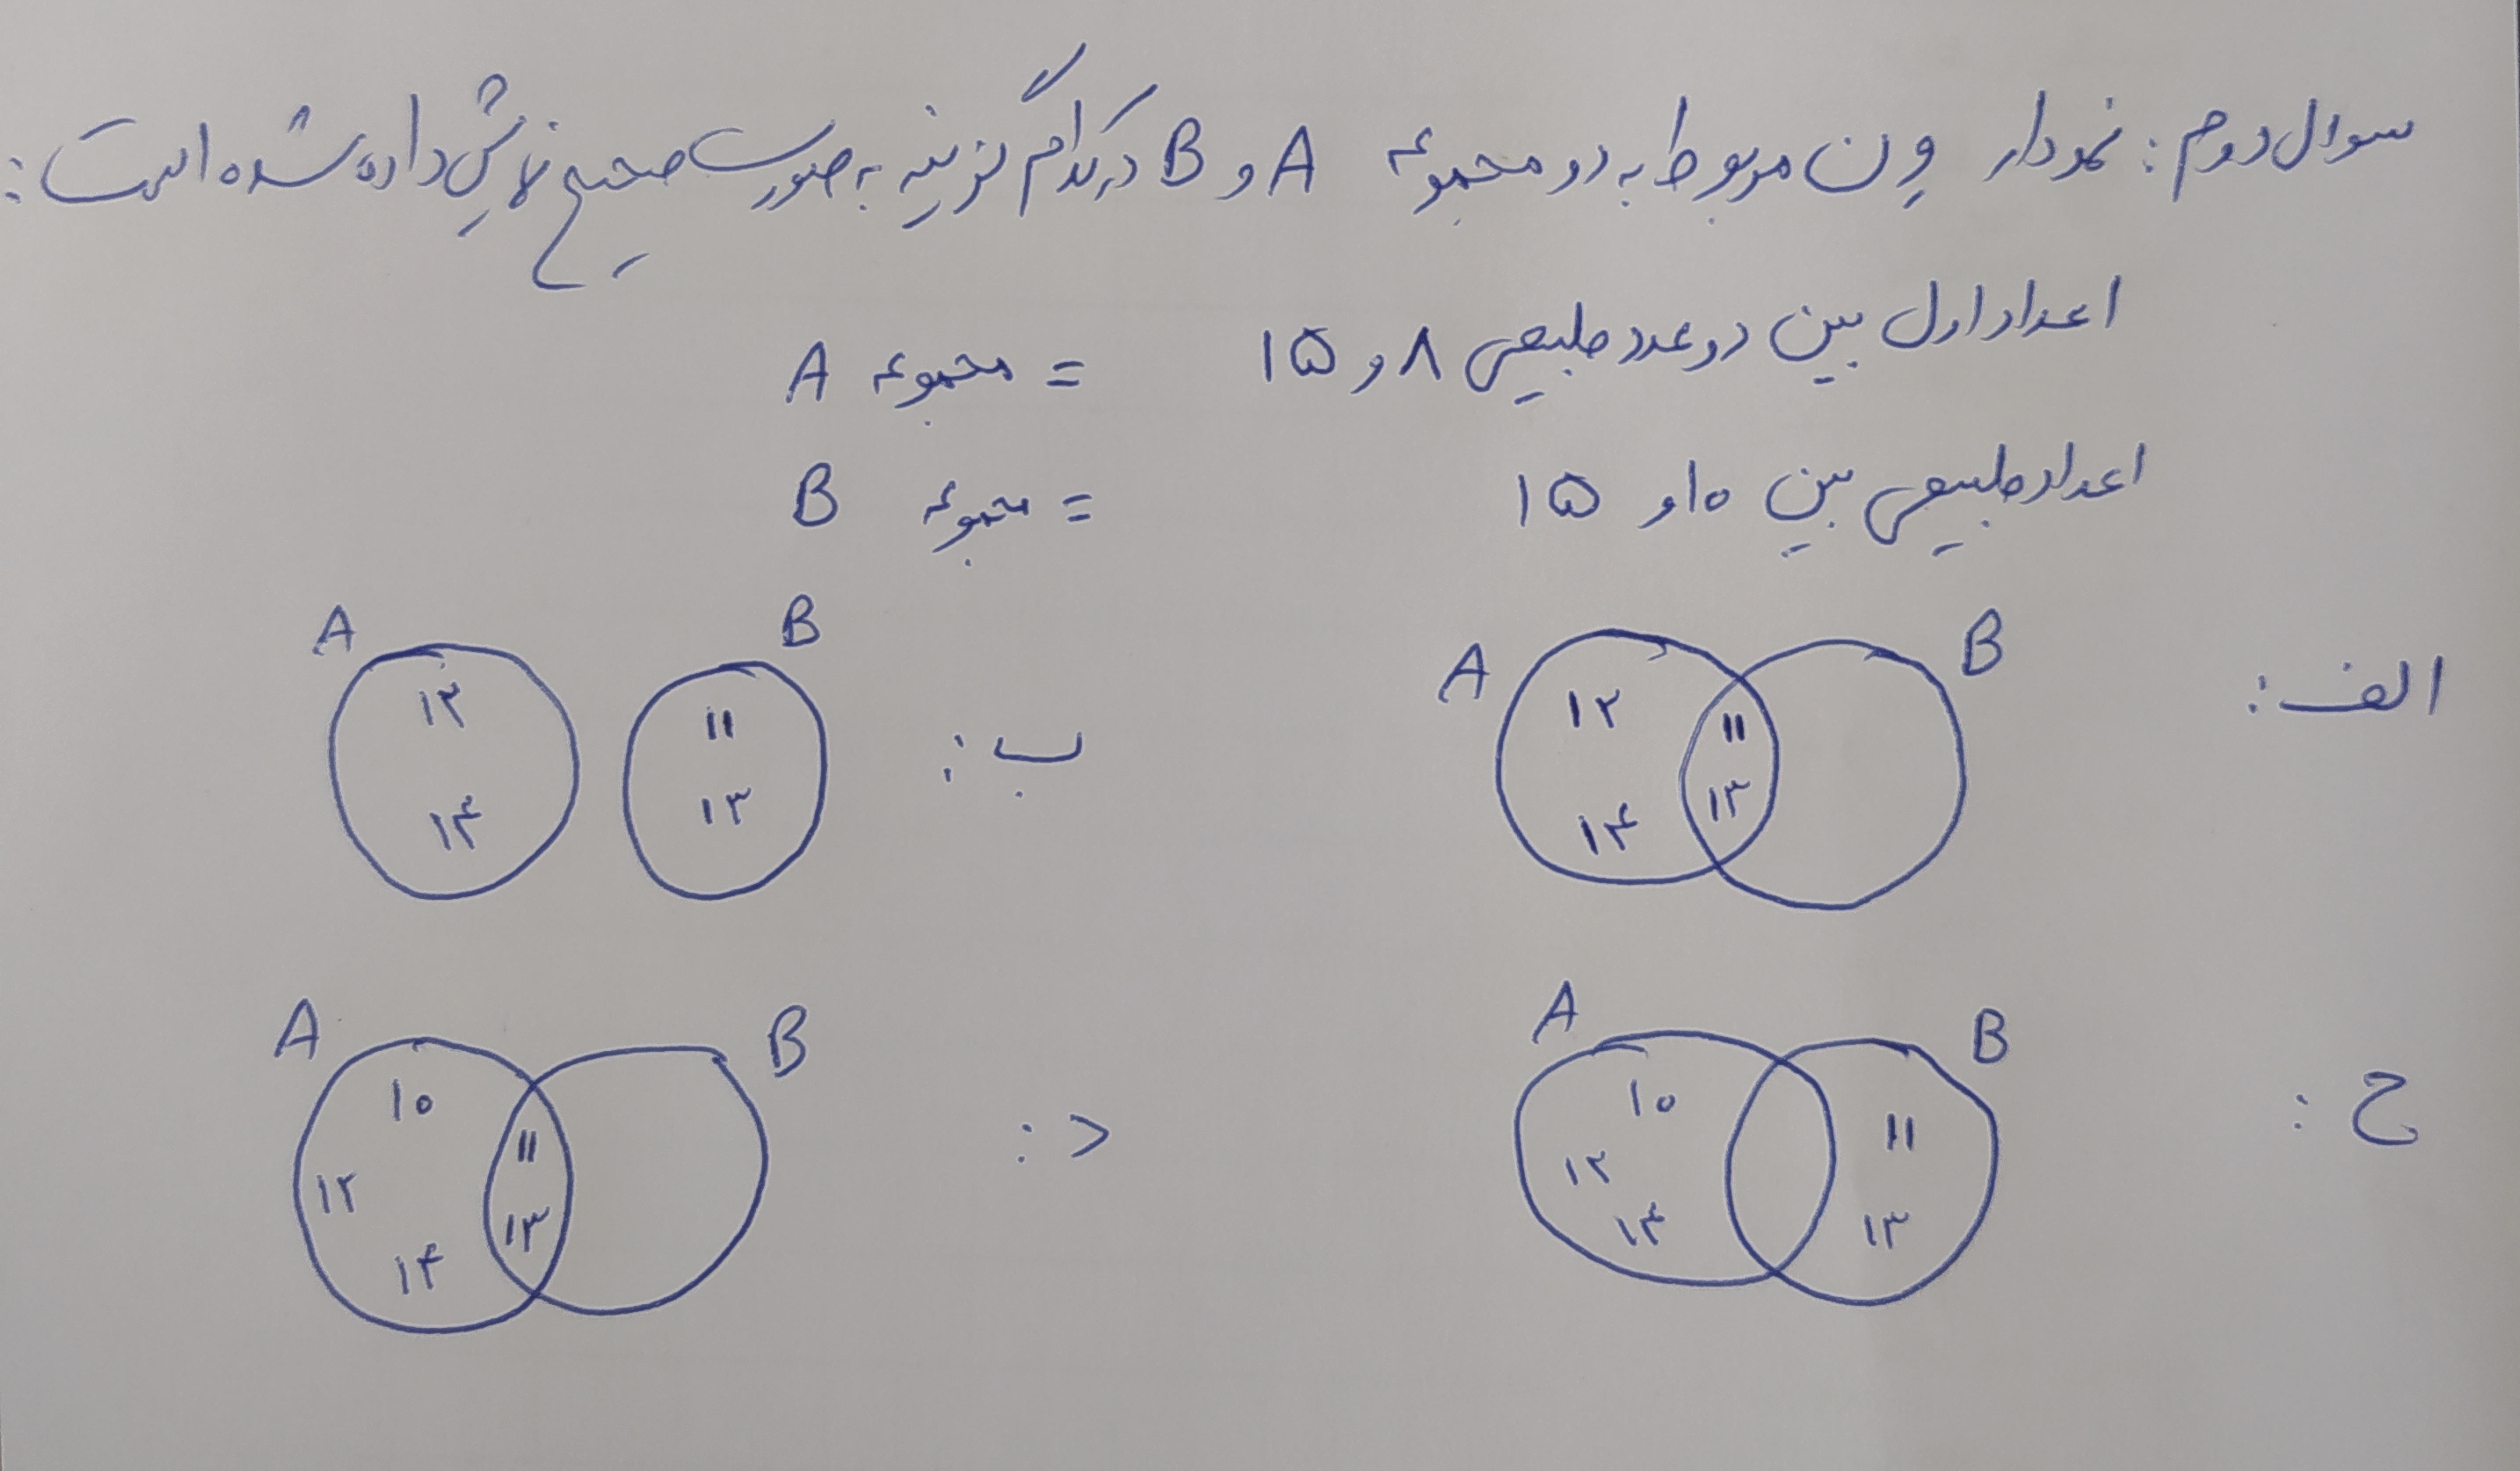 سوال دوم: نمودار ون مربوط به دو مجموعه A و B در کدام گزینه به صورت صحیح نمایش داده شده است:
اعداد اول بین دو عدد طبیعی ۸ و ۱۵ = مجموعه A
اعداد طبیعی بین ۱۰ و ۱۵ = مجموعه B
الف:
A B
۱۲ ۱۱
۱۴ ۱۳
ب:
A B
۱۲ ۱۱
۱۴ ۱۳
ج:
A B
۱۰ ۱۱
۱۲
۱۴ ۱۳
د:
A B
۱۰ ۱۱
۱۲ ۱۳
۱۴